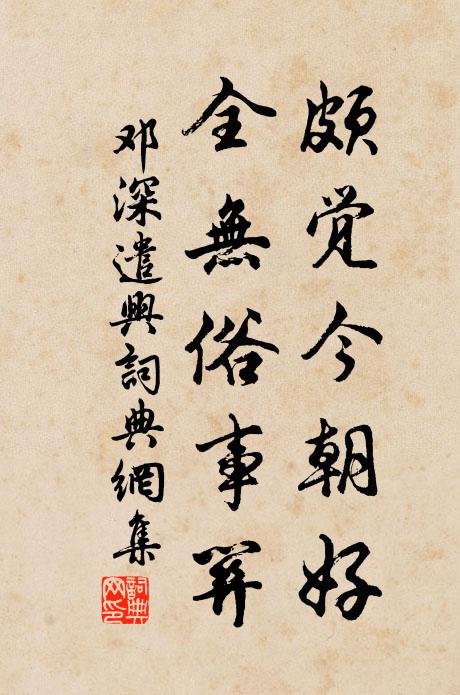 頗觉今朝好
全無俗事并
邓深遣興詞典網集
詞典网印